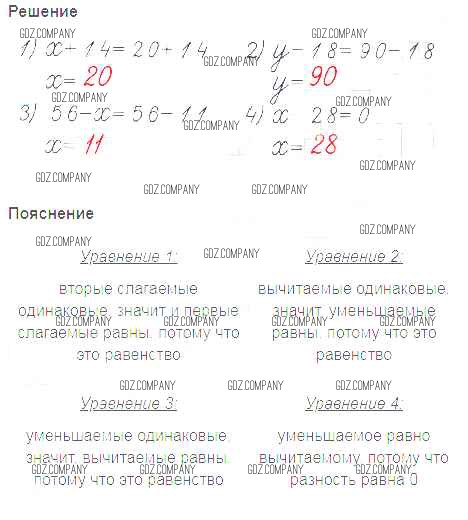 Решение
GDZ.COMPANY
1) x+14=20+14 2) y-18=90-18
GDZ.COMPANY
x=20 y=90
GDZ.COMPANY
3) 56-x=56-11 4) x 28=0
GDZ.COMPANY
x=11 x=28
GDZ.COMPANY
GDZ.COMPANY
GDZ.COMPANY GDZ.COMPANY
Пояснение
GDZ.COMPANY
GDZ.COMPANY
Уравнение 1: GDZ.COMPANY Уравнение 2:
вторые слагаемые вычитаемые одинаковые,
одинаковые, значит и первые значит уменьшаемые
GDZ.COMPANY GDZ.COMPANY GDZ.COMPANY GDZ.COMPANY
слагаемые равны, потому что равны, потому что это
это равенство равенство
GDZ.COMPANY GDZ.COMPANY GDZ.COMPANY
Уравнение 3: Уравнение 4:
уменьшаемые одинаковые уменьшаемое равно
значит, вычитаемые равны, вычитаемому, потому что
GDZ.COMPANY GDZ.COMPANY GDZ.COMPANY GDZ.COMPANY
потому что это равенство разность равна 0